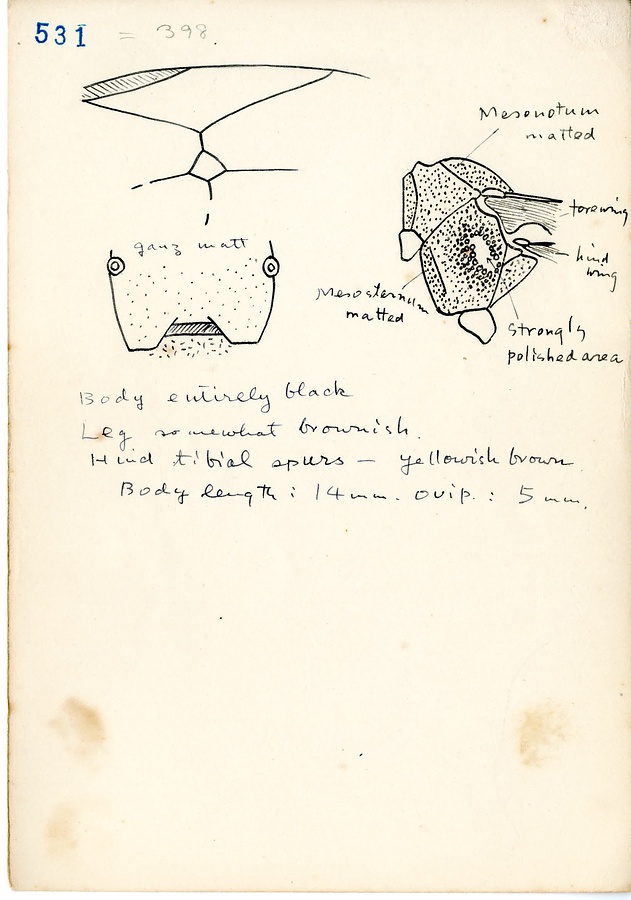 531 = 398.
Mesonotum
matted
forewing
hind
wing
ganz matt
Mesosternum
matted
strongly
polished area
Body entirely black
Leg somewhat brownish.
Hind tibial spurs — yellowish brown
Body length : 14 mm. ovip. : 5 mm.